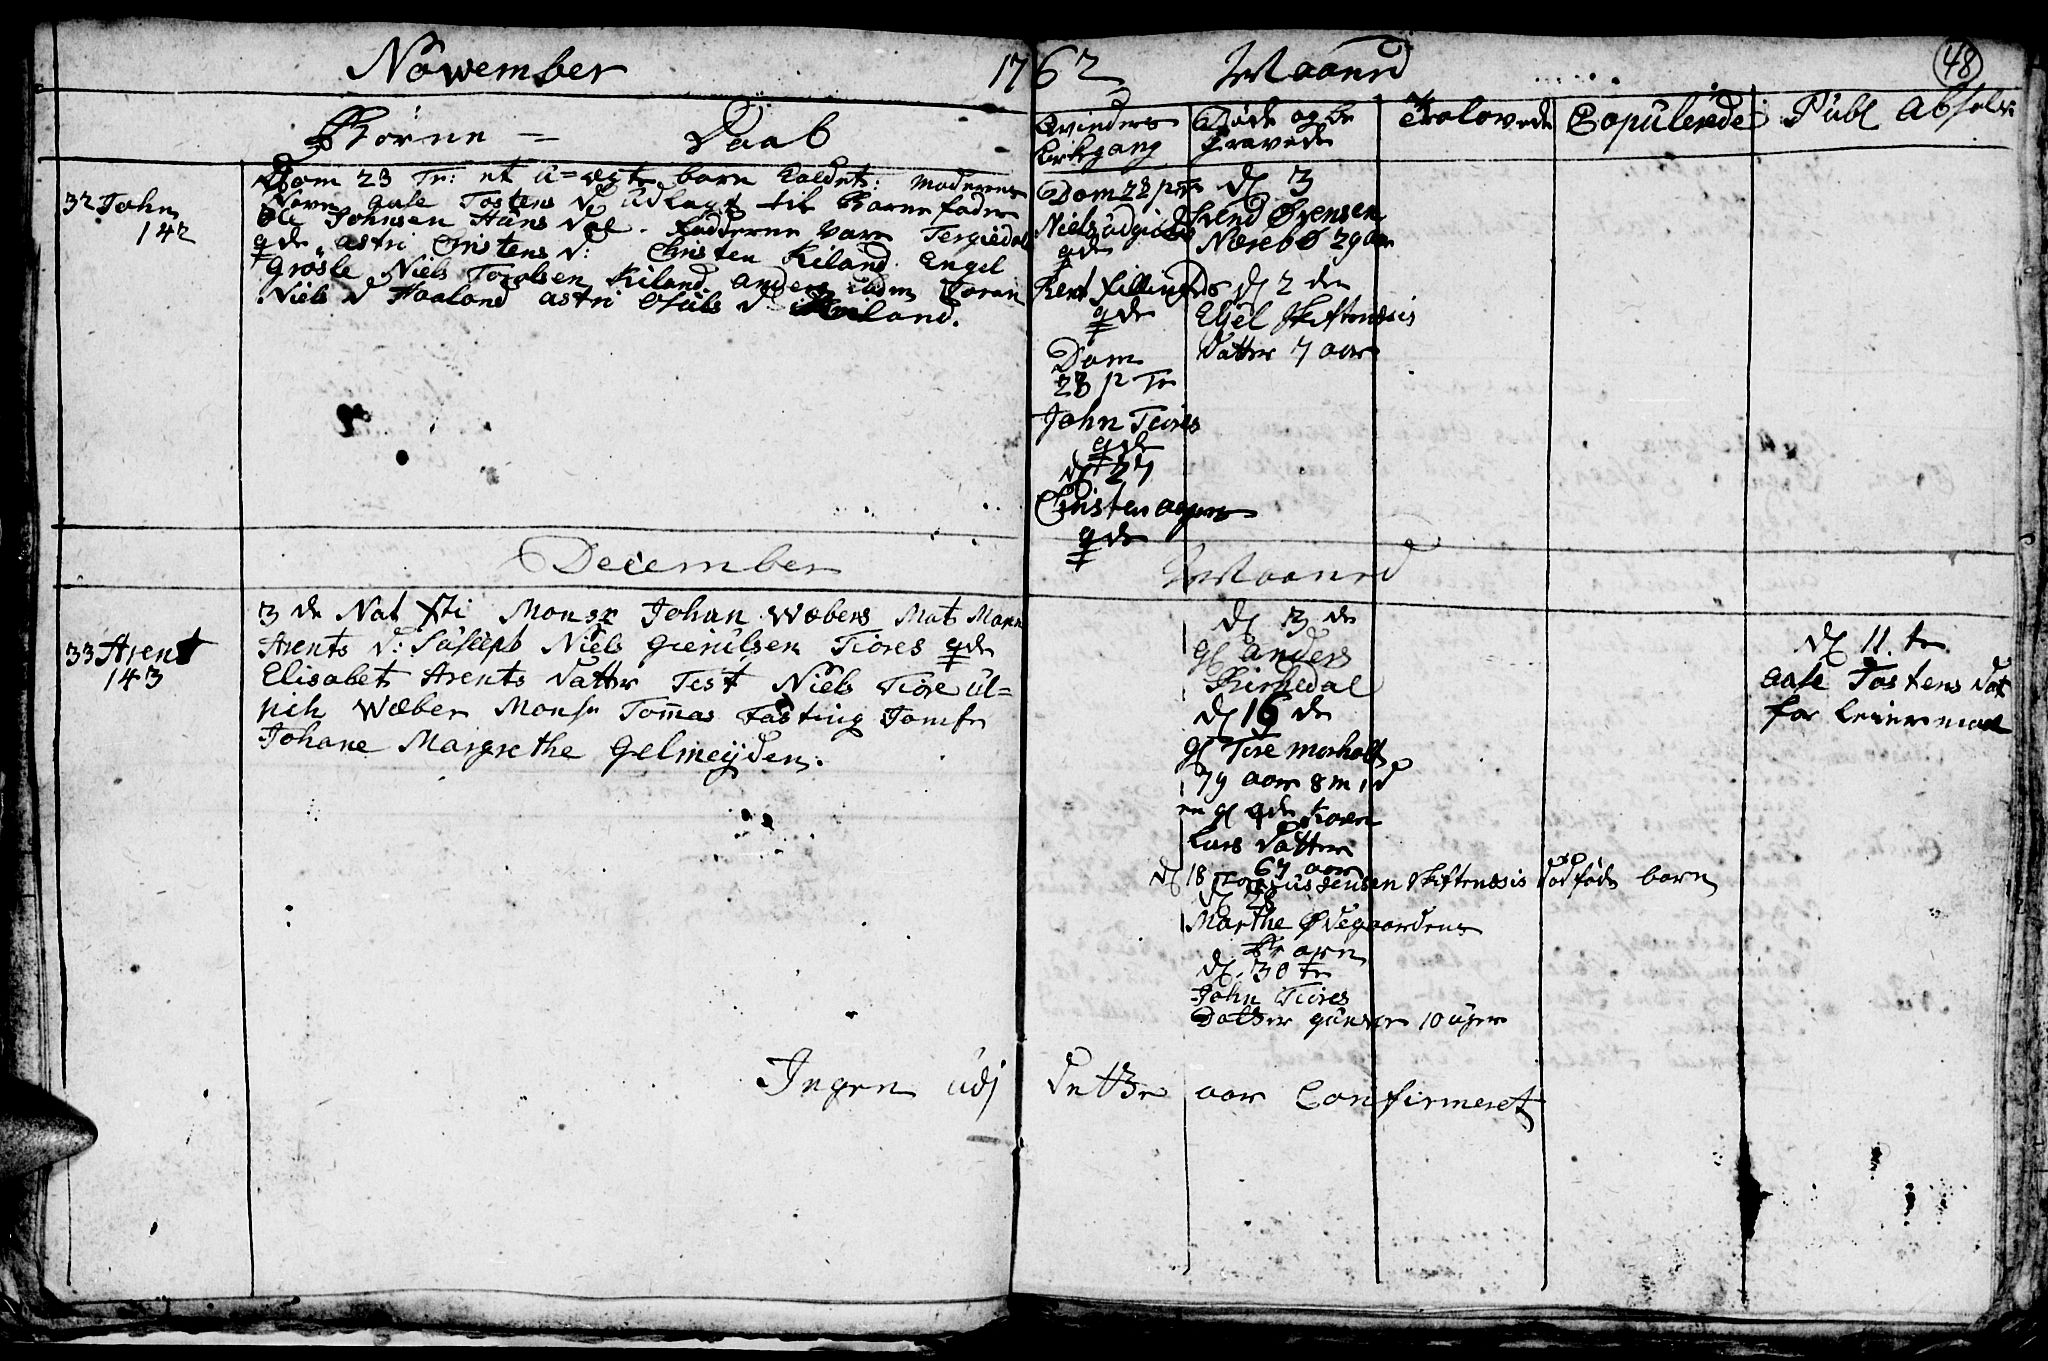 November 1762 Maaned
48
Børne = Daab
Qvinders Kirkgang
Døde og be gravede
Trolovede
Copulerede
Publ Absolv
32 John
142
Dom 23 Tr: et u=ægte barn kaldet: moderens
Navn Aase Tostens D udlagt til Barne fader
Ole Johnsen Hans Dal. Fadderne vare Tergiedal
qde. Astri Christens D: Christen Kiland. Engel
Grösle Niels Torolsen Kiland. Anders ibm Joran
Niels D Haaland Astri Niels D Kiland.
Dom 22 p Tr
Niels udgior
qde
Kert Fillingnes
qde
Dom
23 p Tr
John Tiöres
qde
d 27
Christen
qde
d 3
Svend Ovensen
Nærebö 29 aar
d 2 den
Eljel Skiftenæsis
datter 7 aar
December Maaned
33 Arent
143
3 de Nat Xti Monsr Johan Wæbers Mat Mare
Arents D: Suscept Niels Gierulsen Tiöres qde
Elisabet Arents Datter Test Niels Tiöre Ul=
rich Wæber Monsr Tom̄as Fasting Jomfr
Johane Margrethe Gelmeijden.
d 3 de
gl Anders
Birkedal
d 16 de
gl Tore morholt
79 aar 8 m 1 d
en gl qde Karen
Lars Datter
67 aar
d 18 Jensen Skiftenæsis dødføde barn
d 28
Marthe Ødegaardens
Barn
d. 30 te
John Tiöres
Datter Gunver 10 uger
d 11. te
Aase Tostens Dat
for Leiermaal
Ingen udj dette aar Confirmeret